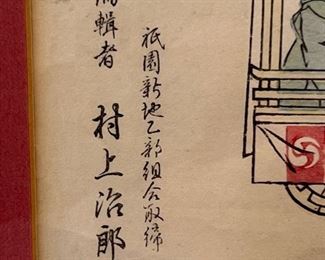 祇園新地乙部組合取締
編輯者 村上治郎